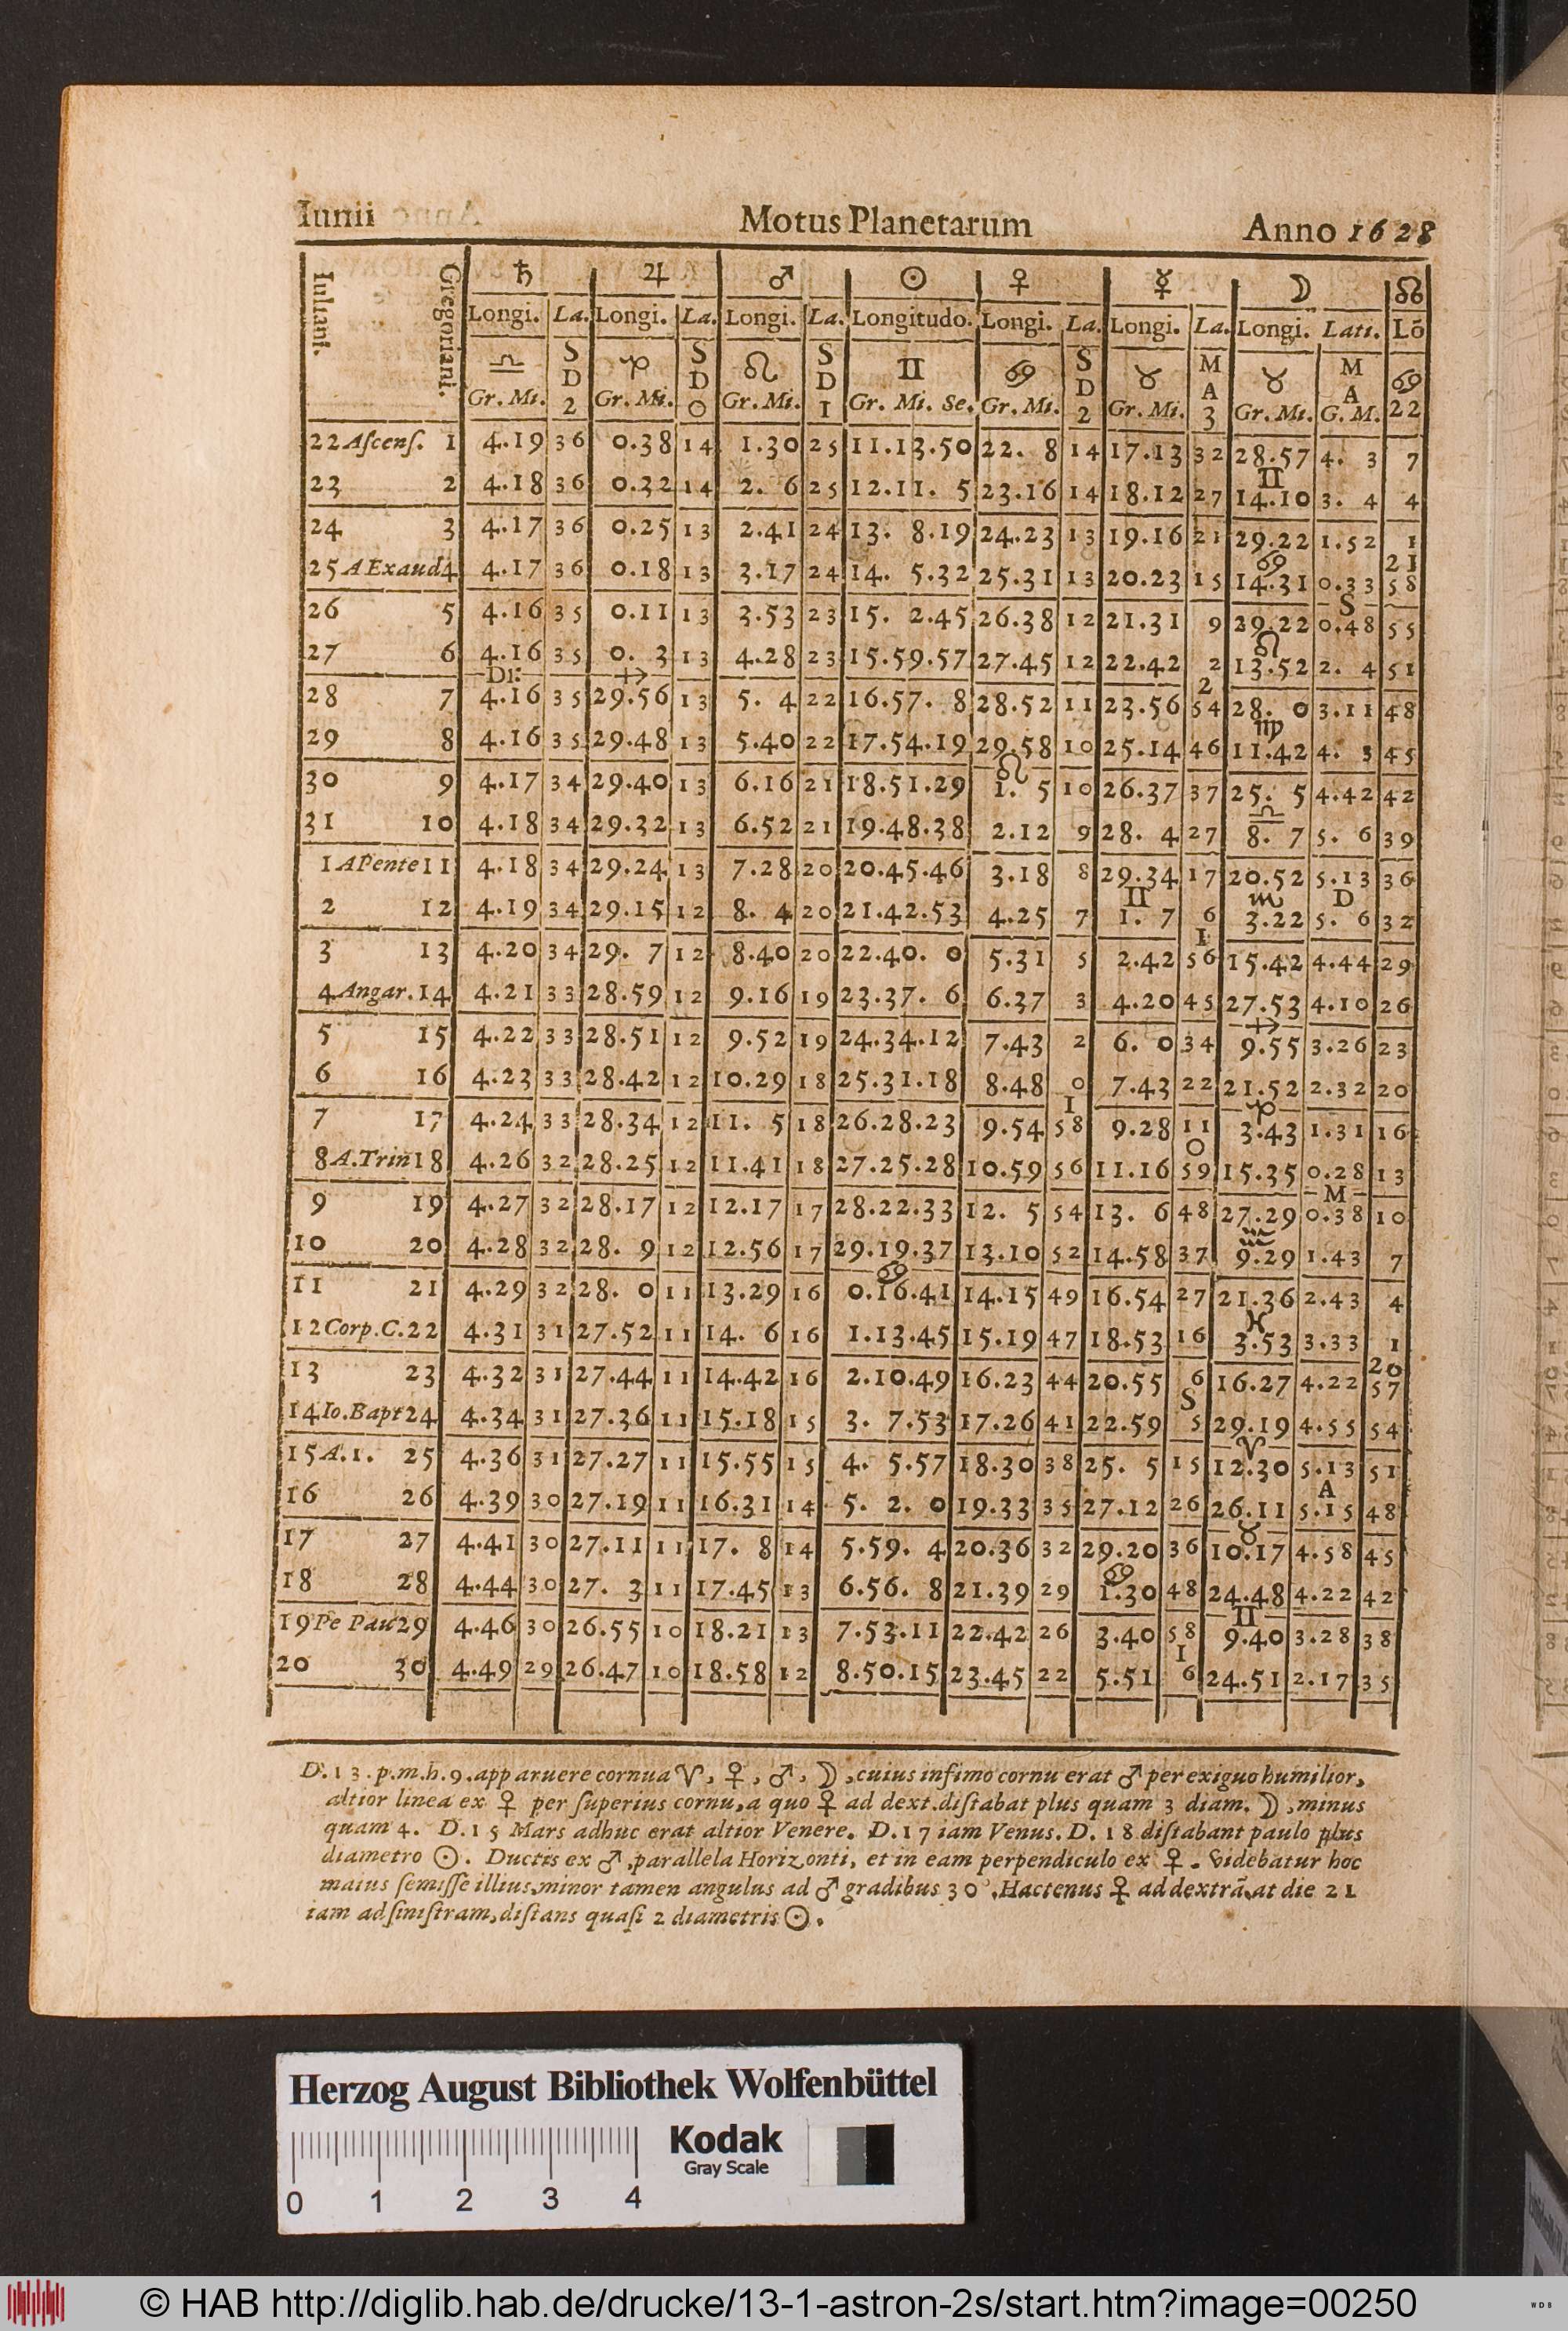 Iunii Motus Planetarum Anno 1628
Iuliani. Gregoriani. ♄ ♃ ♂ ☉ ♀ ☿ ☽ ☊
Longi. La. Longi. La. Longi. La. Longitudo. Longi. La. Longi. La. Longi. Lati. Lō
♎ S D 2 ♑ S D O ♌ S D I ♊ ♋ S D 2 ♉ M A 3 ♉ M A ♋
Gr. Mi. Gr. Mi. Gr. Mi. Gr. Mi. Se. Gr. Mi. Gr. Mi. Gr. Mi. G. M. 22
22 Aſcenſ. 1 4.19 36 0.38 14 1.30 25 11.13.50 22. 8 14 17.13 32 28.57 4. 3 7
♊
23 2 4.18 36 0.32 14 2. 6 25 12.11. 5 23.16 14 18.12 27 14.10 3. 4 4
24 3 4.17 36 0.25 13 2.41 24 13. 8.19 24.23 13 19.16 21 29.22 1.52 1
♋ 21
25 A Exaud 4 4.17 36 0.18 13 3.17 24 14. 5.32 25.31 13 20.23 15 14.31 0.33 58
S
26 5 4.16 35 0.11 13 3.53 23 15. 2.45 26.38 12 21.31 9 29.22 0.48 55
♌
27 6 4.16 35 0. 3 13 4.28 23 15.59.57 27.45 12 22.42 2 13.52 2. 4 51
Di: ♐ 2
28 7 4.16 35 29.56 13 5. 4 22 16.57. 8 28.52 11 23.56 54 28. 0 3.11 48
♍
29 8 4.16 35 29.48 13 5.40 22 17.54.19 29.58 10 25.14 46 11.42 4. 3 45
♌
30 9 4.17 34 29.40 13 6.16 21 18.51.29 1. 5 10 26.37 37 25. 5 4.42 42
♎
31 10 4.18 34 29.32 13 6.52 21 19.48.38 2.12 9 28. 4 27 8. 7 5. 6 39
1 A Pente 11 4.18 34 29.24 13 7.28 20 20.45.46 3.18 8 29.34 17 20.52 5.13 36
♊ ♏ D
2 12 4.19 34 29.15 12 8. 4 20 21.42.53 4.25 7 1. 7 6 3.22 5. 6 32
I
3 13 4.20 34 29. 7 12 8.40 20 22.40. 0 5.31 5 2.42 56 15.42 4.44 29
4 Angar. 14 4.21 33 28.59 12 9.16 19 23.37. 6 6.37 3 4.20 45 27.53 4.10 26
♐
5 15 4.22 33 28.51 12 9.52 19 24.34.12 7.43 2 6. 0 34 9.55 3.26 23
6 16 4.23 33 28.42 12 10.29 18 25.31.18 8.48 0 7.43 22 21.52 2.32 20
I ♑
7 17 4.24 33 28.34 12 11. 5 18 26.28.23 9.54 58 9.28 11 3.43 1.31 16
O
8 A. Trin 18 4.26 32 28.25 12 11.41 18 27.25.28 10.59 56 11.16 59 15.35 0.28 13
M
9 19 4.27 32 28.17 12 12.17 17 28.22.33 12. 5 54 13. 6 48 27.29 0.38 10
♒
10 20 4.28 32 28. 9 12 12.56 17 29.19.37 13.10 52 14.58 37 9.29 1.43 7
♋
11 21 4.29 32 28. 0 11 13.29 16 0.16.41 14.15 49 16.54 27 21.36 2.43 4
♓
12 Corp. C. 22 4.31 31 27.52 11 14. 6 16 1.13.45 15.19 47 18.53 16 3.53 3.33 1
20
13 23 4.32 31 27.44 11 14.42 16 2.10.49 16.23 44 20.55 6 16.27 4.22 57
S
14 Io. Bapt 24 4.34 31 27.36 11 15.18 15 3. 7.53 17.26 41 22.59 5 29.19 4.55 54
♈
15 A. 1. 25 4.36 31 27.27 11 15.55 15 4. 5.57 18.30 38 25. 5 15 12.30 5.13 51
A
16 26 4.39 30 27.19 11 16.31 14 5. 2. 0 19.33 35 27.12 26 26.11 5.15 48
♉
17 27 4.41 30 27.11 11 17. 8 14 5.59. 4 20.36 32 29.20 36 10.17 4.58 45
♋
18 28 4.44 30 27. 3 11 17.45 13 6.56. 8 21.39 29 1.30 48 24.48 4.22 42
♊
19 Pe Pau 29 4.46 30 26.55 10 18.21 13 7.53.11 22.42 26 3.40 58 9.40 3.28 38
I
20 30 4.49 29 26.47 10 18.58 12 8.50.15 23.45 22 5.51 6 24.51 2.17 35
D. 13. p. m. h. 9. apparuere cornua ♈, ♀, ♂, ☽, cuius infimo cornu erat ♂ per exiguo humilior,
altior linea ex ♀ per ſuperius cornu, a quo ♀ ad dext. diſtabat plus quam 3 diam. ☽, minus
quam 4. D. 15 Mars adhuc erat altior Venere. D. 17 iam Venus. D. 18 diſtabant paulo plus
diametro ☉. Ductis ex ♂, parallela Horizonti, et in eam perpendiculo ex ♀. Videbatur hoc
maius ſemiſſe illius, minor tamen angulus ad ♂ gradibus 30°, Hactenus ♀ ad dextrã, at die 21
iam ad ſiniſtram, diſtans quaſi 2 diametris ☉.
Herzog August Bibliothek Wolfenbüttel
Kodak
Gray Scale
0 1 2 3 4
© HAB http://diglib.hab.de/drucke/13-1-astron-2s/start.htm?image=00250
WDB